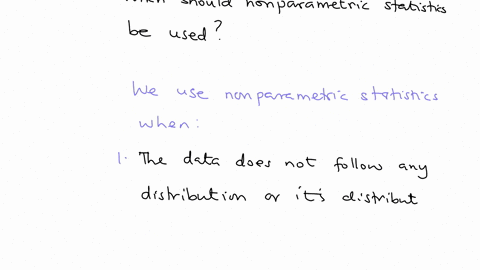 when should nonparametric statistics
be used?
We use nonparametric statistics
when:
1. The data does not follow any
distribution or it's distribut